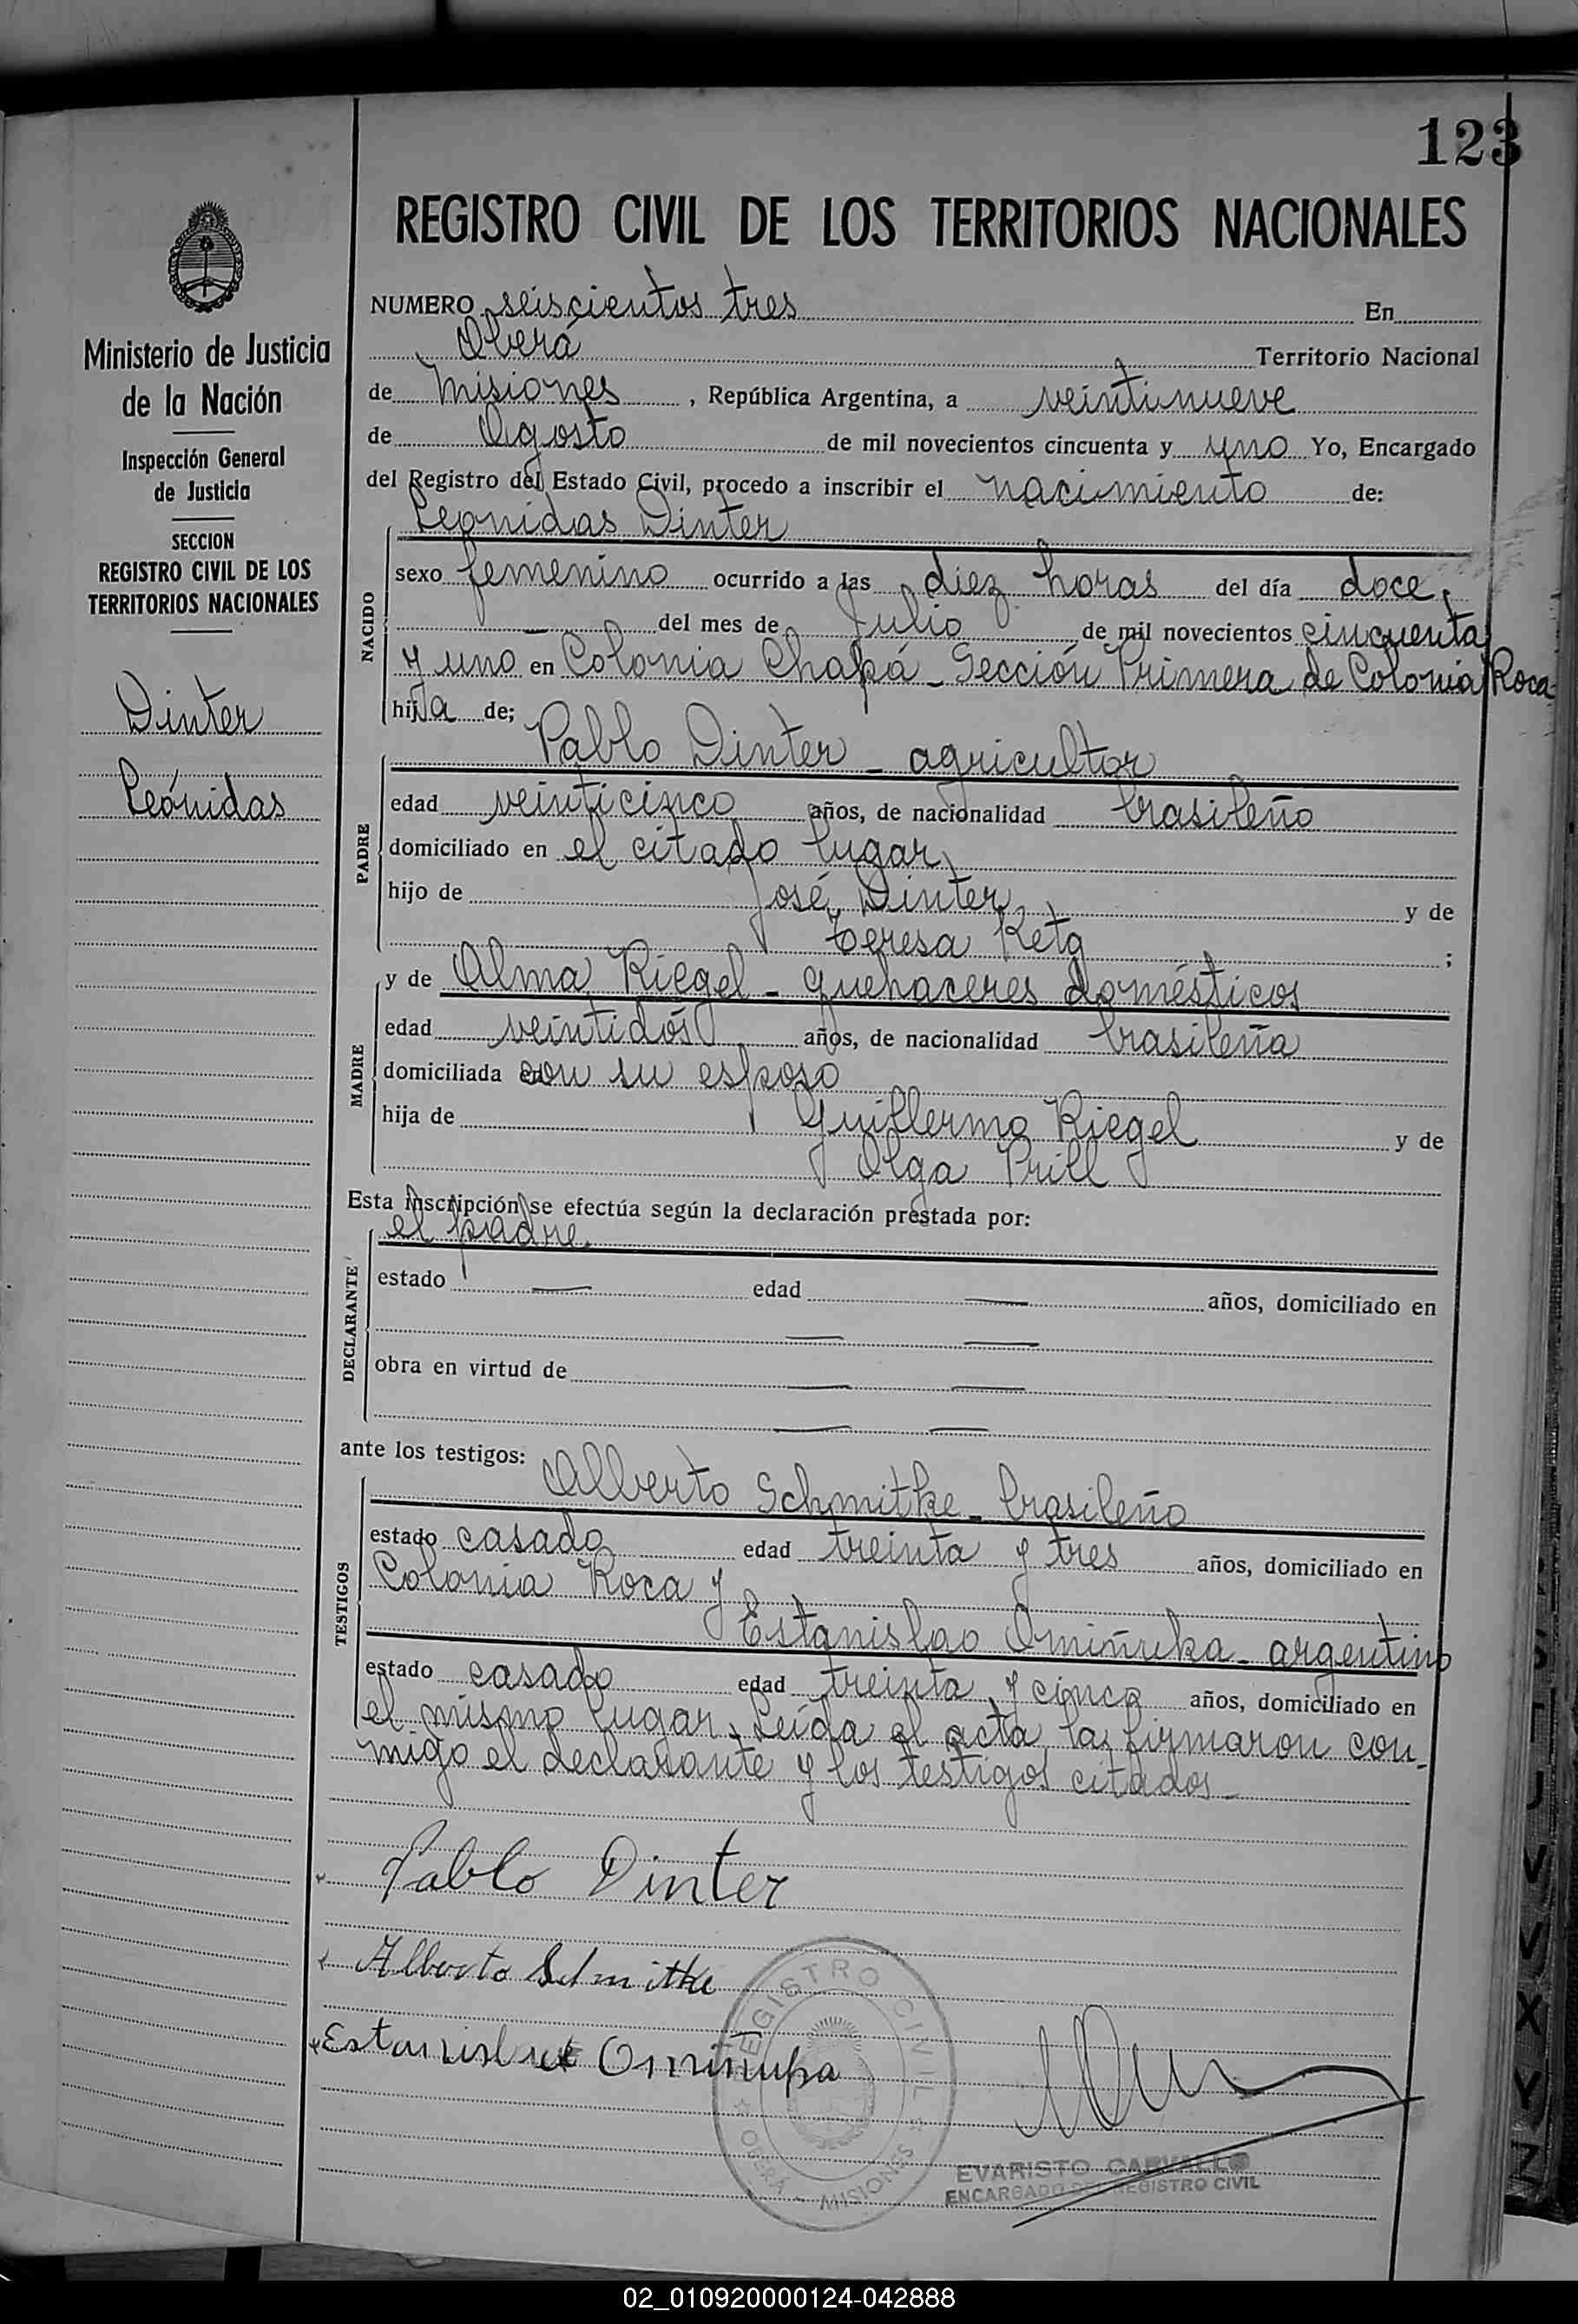 123
REGISTRO CIVIL DE LOS TERRITORIOS NACIONALES
Ministerio de Justicia
de la Nación
Inspección General
de Justicia
SECCION
REGISTRO CIVIL DE LOS
TERRITORIOS NACIONALES
Dinter
Leónidas
NUMERO seiscientos tres En
Oberá Territorio Nacional
de Misiones , República Argentina, a veintinueve
de Agosto de mil novecientos cincuenta y uno Yo, Encargado
del Registro del Estado Civil, procedo a inscribir el nacimiento de:
NACIDO
Leonidas Dinter
sexo femenino ocurrido a las diez horas del día doce
del mes de Julio de mil novecientos cincuenta
y uno en Colonia Chapá - Sección Primera de Colonia Roca
hija de;
PADRE
Pablo Dinter - agricultor
edad veinticinco años, de nacionalidad brasileño
domiciliado en el citado lugar,
hijo de José Dinter y de
Teresa Retg ;
MADRE
y de Alma Riegel - quehaceres domésticos
edad veintidós años, de nacionalidad brasileña
domiciliada con su esposo
hija de Guillermo Riegel y de
Olga Prill
Esta inscripción se efectúa según la declaración prestada por:
DECLARANTE
el padre.
estado — edad — años, domiciliado en
— —
obra en virtud de — —
— —
ante los testigos:
TESTIGOS
Alberto Schmitke - brasileño
estado casado edad treinta y tres años, domiciliado en
Colonia Roca y
Estanislao Omiñuka - argentino
estado casado edad treinta y cinco años, domiciliado en
el mismo lugar. Leída el acta la firmaron con-
migo el declarante y los testigos citados -
Pablo Dinter
Alberto Schmitke
Omiñuka
REGISTRO CIVIL
OBERÁ - MISIONES
EVARISTO CARVALLO
ENCARGADO DEL REGISTRO CIVIL
S
T
U
V
X
Y
Z
02_010920000124-042888